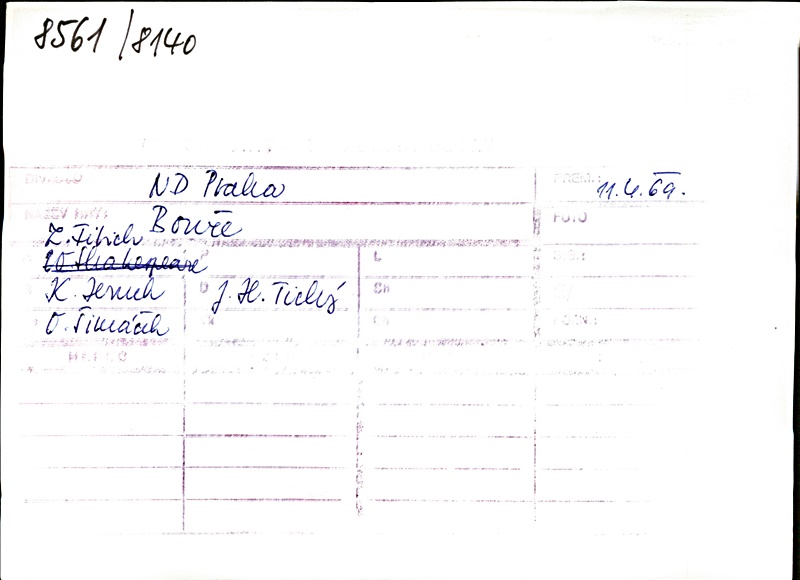 8561/8140
DIVADLO ND Praha PREM.: 11.4.69.
NÁZEV HRY: Bouře FOTO
Z. Fibich
W Shakespeare
L
K. Jernek D J. H. Tichý Sh
O. Šimáček POZN.: